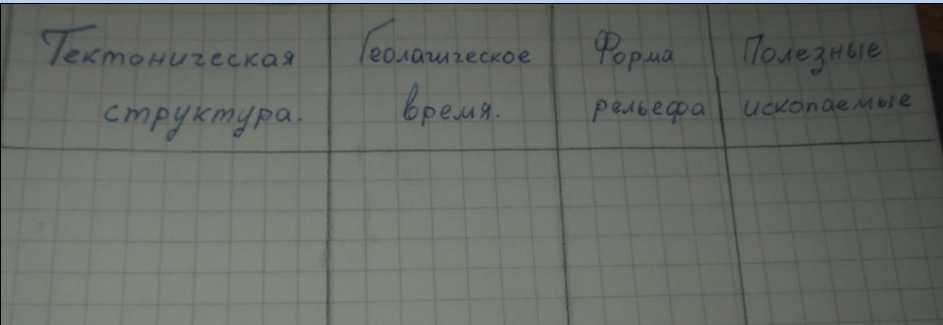 Тектоническая
структура.
Геолагическое
время.
Форма
рельефа
Полезные
ископаемые